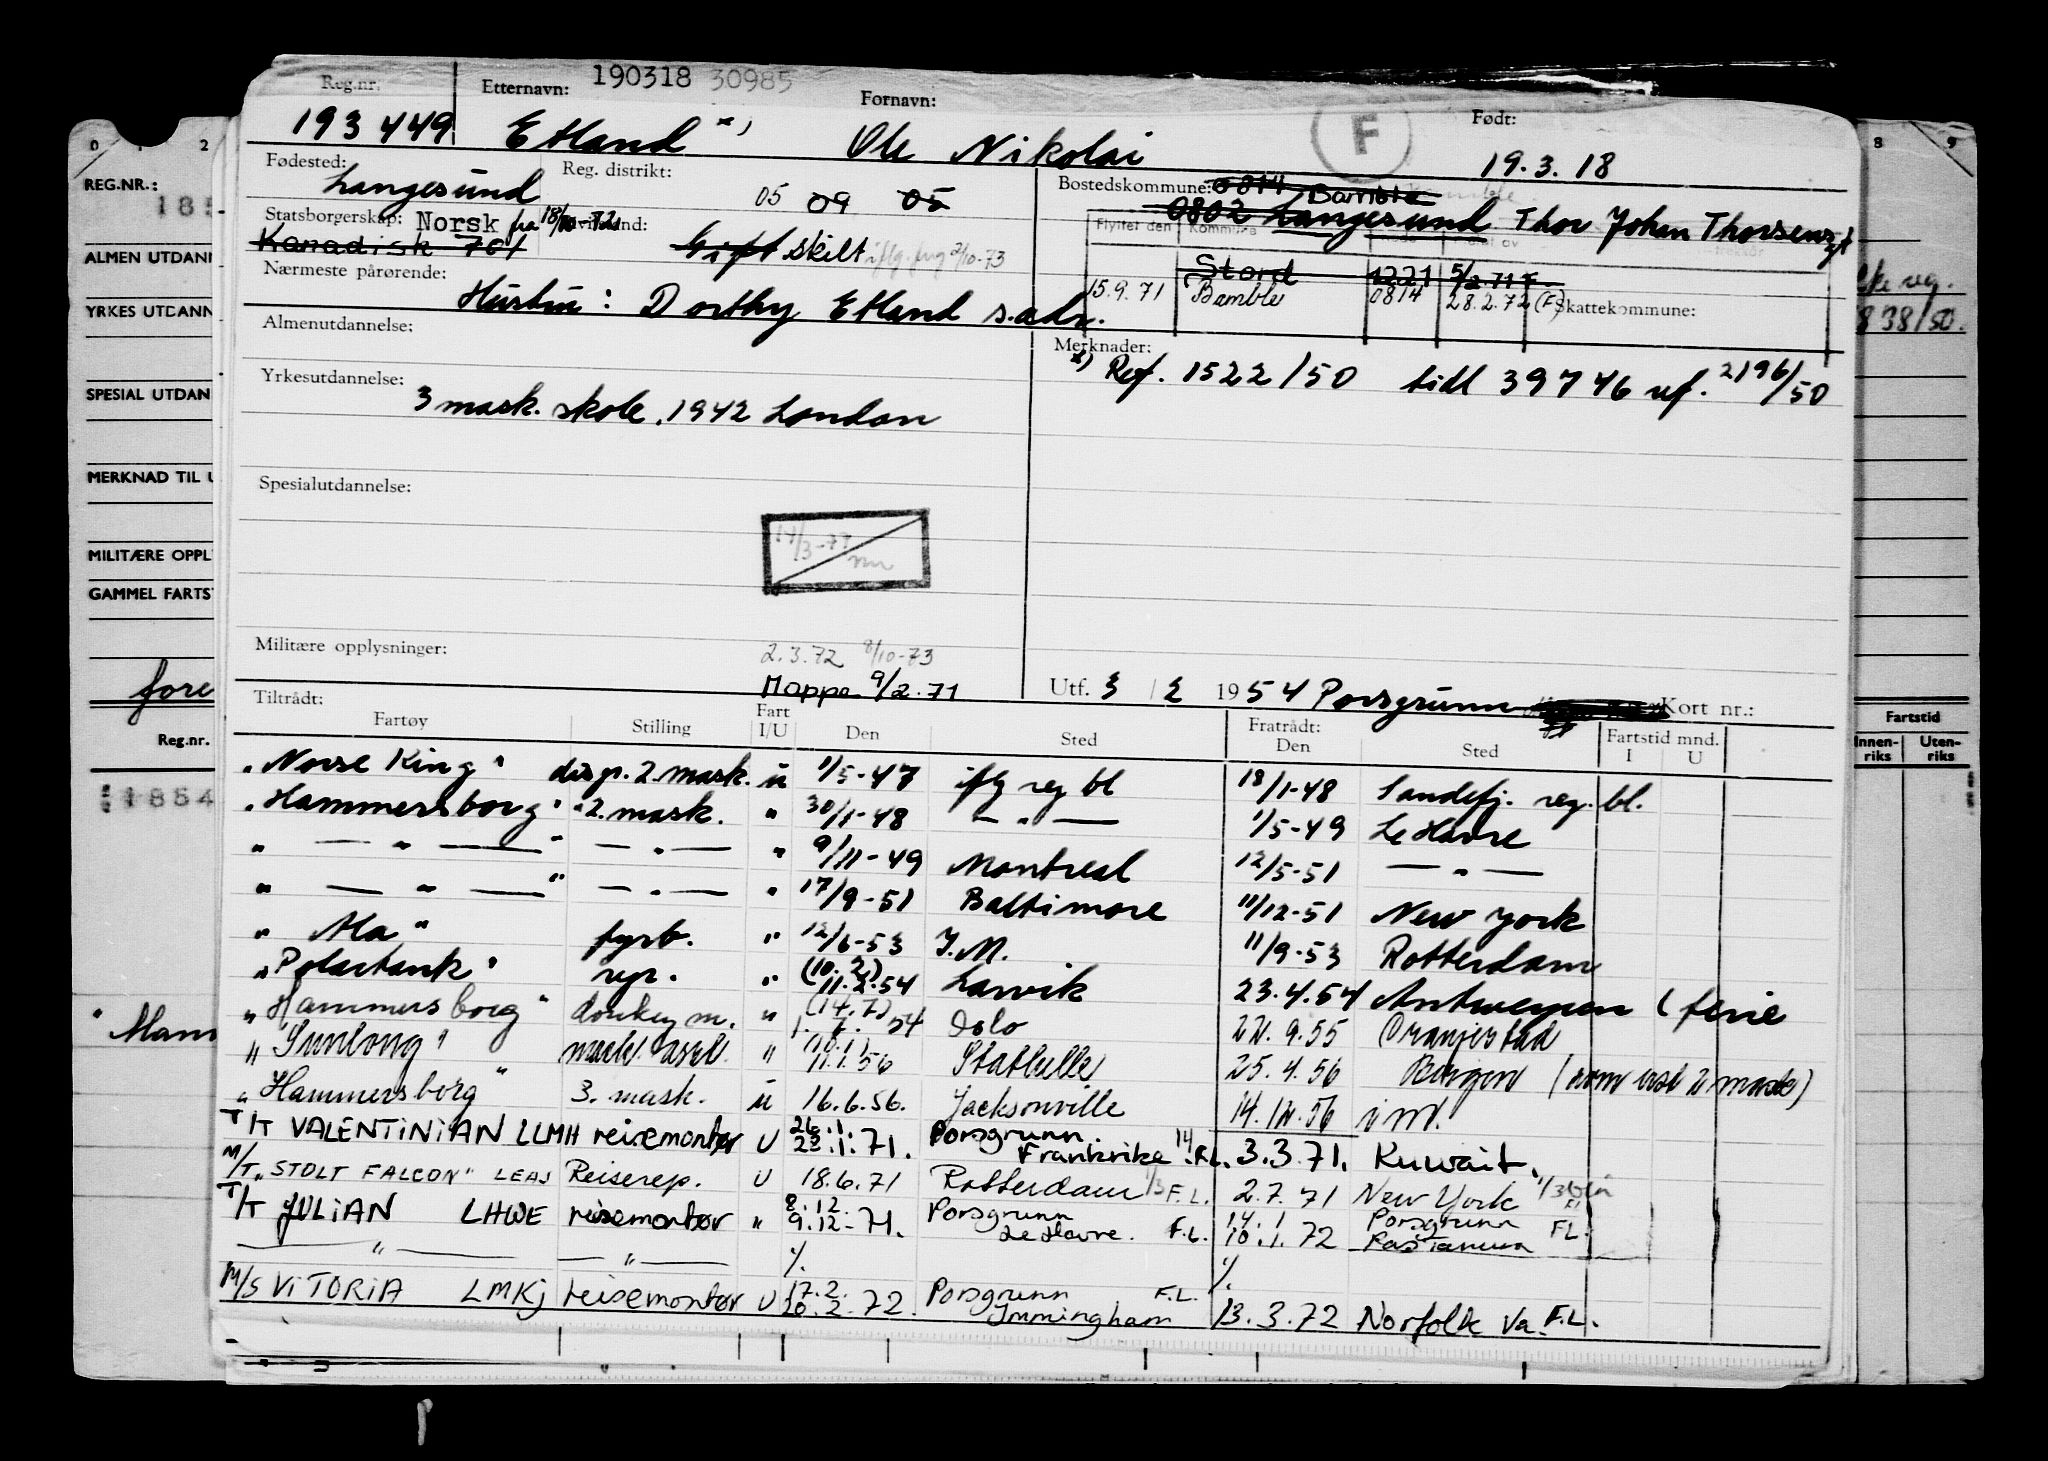 Reg.nr. Etternavn: 190318 30985 Fornavn: Født:
193449 Etland x) Ole Nikolai F 19.3.18
Fødested: Langesund Reg. distrikt: 05 09 05 Bostedskommune: 0814 Bamble
0802 Langesund Thor Johan Thorsensgt
Statsborgerskap: Norsk fra 18/10-72
Kanadisk 701 Gift skilt iflg. frug 2/10-73
Flyttet den Kommune
Stord 1221 5/2.71 F.
15.9.71 Bamble 0814 28.2.72 (F) Skattekommune:
Nærmeste pårørende: Hustru: Dorthy Etland s.adr.
Almenutdannelse: Merknader:
x) Ref. 1522/50 tidl 39746 ref. 2196/50
Yrkesutdannelse: 3 mask. skole. 1942 London
Spesialutdannelse:
14/3-79
Militære opplysninger: 2.3.72 8/10-73
Mappe 9/2.71 Utf. 3/2 1954 Porsgrunn Kort nr.:
Tiltrådt: Fratrådt:
Fartøy Stilling Fart I/U Den Sted Den Sted Fartstid mnd. I U
"Norse King" disp. 2. mask. u 1/5-47 iflg reg bl 18/1-48 Sandefj. reg. bl.
"Hammersborg" 2. mask. " 30/1-48 — " — 1/5-49 Le Havre
" — " — " — " — " 9/11-49 Montreal 12/5-51 — " —
" — " — " — " — " 17/9-51 Baltimore 11/12-51 New York
" Ala " fyrb. " 12/6-53 I.M. 11/9-53 Rotterdam
"Polartank" rep. " (10.2) 11.2.54 Larvik 23.4.54 Antwerpen (ferie
"Hammersborg" donkeym. " (14.7) 54 Oslo 22.9.55 Oranjestad
"Sunlong" mask. asst. " 11.1.56 Statlelle 25.4.56 Bergen (som asst 2 mask)
"Hammersborg" 3. mask. u 16.6.56. Jacksonville 14.12.56 i.m.
T/T VALENTINIAN LLMH reisemontør U 26.1. 23.1.71. Porsgrunn. Frankrike F.L. 3.3.71. Kuwait.
M/T "STOLT FALCON" LEAJ Reiserep. U 18.6.71 Rotterdam F.L. 2.7.71 New York
T/T JULIAN LHWE reisemontør " 8.12. 9.12-71. Porsgrunn Le Havre. F.L. 14.1 10.1.72 Porsgrunn Ras Tanura FL.
— " — — " — %. %.
M/S VITORIA LMKJ reisemontør U 17.2. 20.2.72. Porsgrunn Immingham F.L. 13.3.72 Norfolk Va. F.L.
0 1 2 8 9
REG.NR.:
185
ALMEN UTDANN
YRKES UTDANN
838/50.
SPESIAL UTDAN
MERKNAD TIL U
MILITÆRE OPPL
GAMMEL FARTST
fore
Reg.nr. Fartstid
Innenriks Utenriks
1854
"Mam